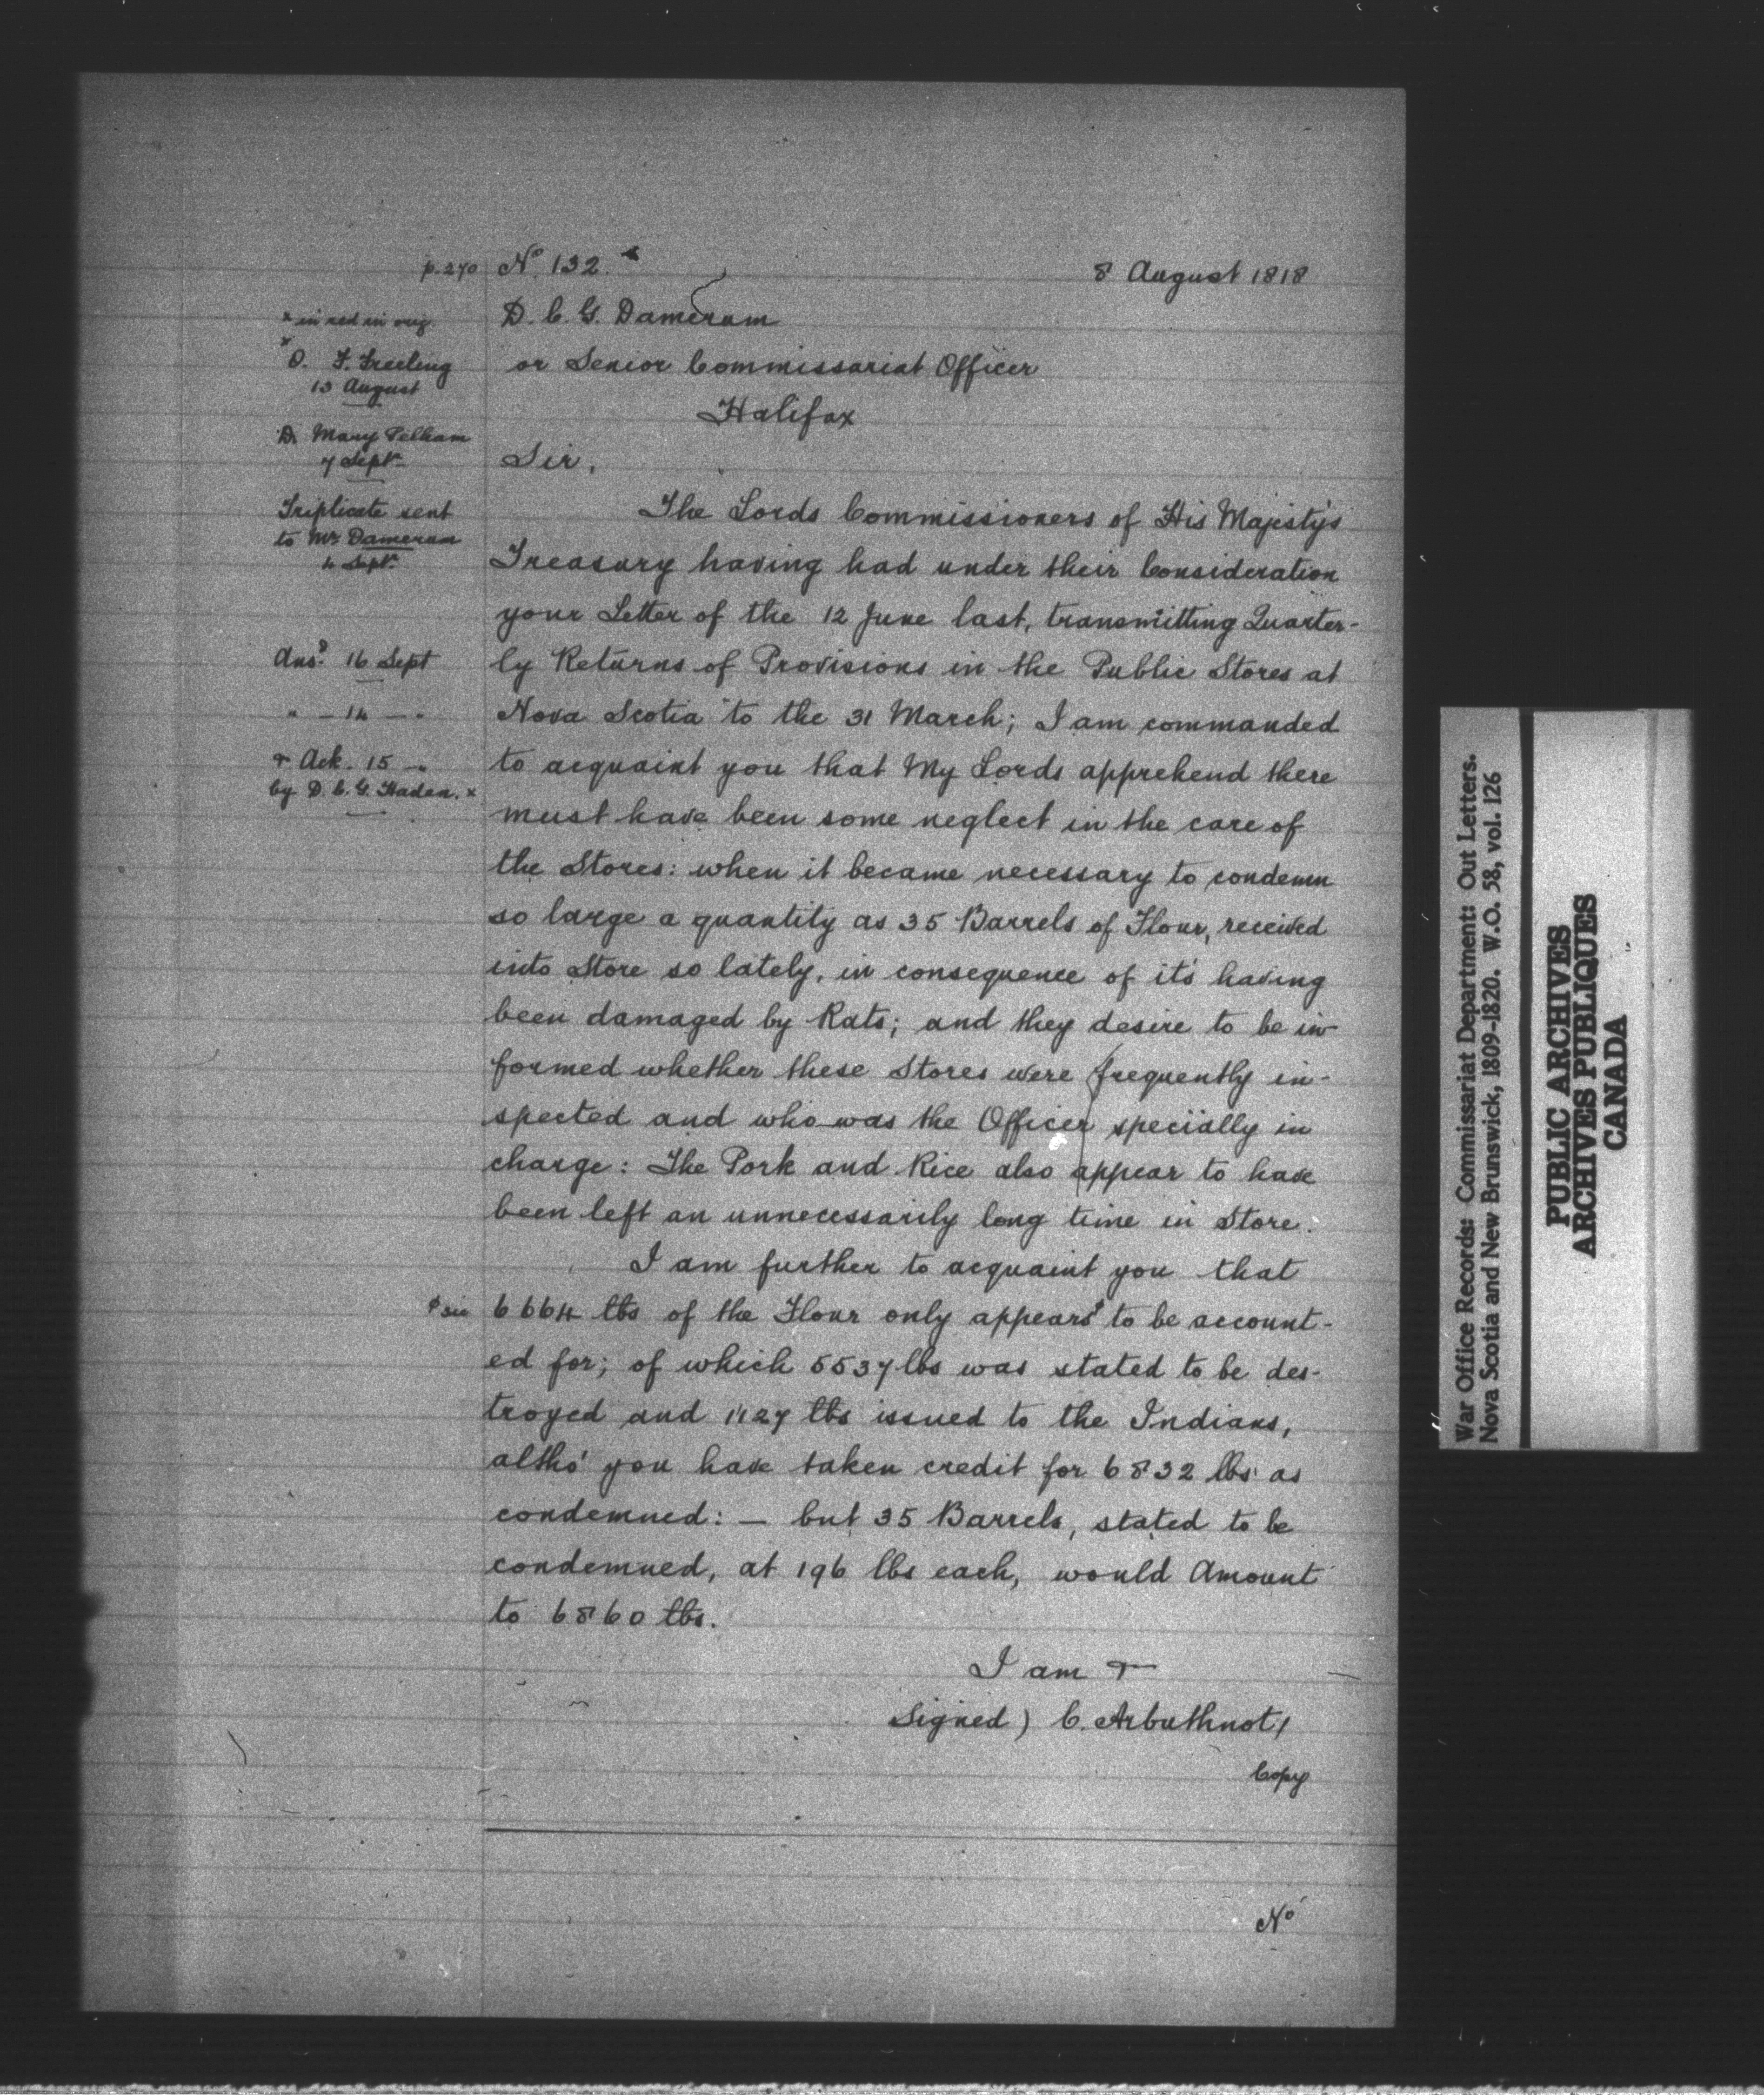 p. 270 No. 132.
8 August 1818
D. C. G. Dameram
or Senior Commissariat Officer
Halifax
x in red in orig.
x
O. F. Freeling
13 August
D. Mary Pelham
7 Sept
Triplicate sent
to Mr Dameram
4 Sept
Ansd. 16 Sept
" - 14 - "
& Ack. 15 - "
by D. C. G. Haden. x
Sir,
The Lords Commissioners of His Majesty's
Treasury having had under their Consideration
your Letter of the 12 June last, transmitting Quarter-
ly Returns of Provisions in the Public Stores at
Nova Scotia to the 31 March; I am commanded
to acquaint you that My Lords apprehend there
must have been some neglect in the care of
the Stores: when it became necessary to condemn
so large a quantity as 35 Barrels of Flour, received
into Store so lately, in consequence of it's having
been damaged by Rats; and they desire to be in-
formed whether these Stores were frequently in-
spected and who was the Officer specially in
charge: The Pork and Rice also appear to have
been left an unnecessarily long time in Store.
I am further to acquaint you that
sic 6664 lbs of the Flour only appears to be account-
ed for; of which 5537 lbs was stated to be des-
troyed and 1127 lbs issued to the Indians,
altho' you have taken credit for 6832 lbs as
condemned: — but 35 Barrels, stated to be
condemned, at 196 lbs each, would Amount
to 6860 lbs.
I am &
Signed) C. Arbuthnot/
Copy
No
War Office Records: Commissariat Department: Out Letters.
Nova Scotia and New Brunswick, 1809-1820. W.O. 58, vol. 126
PUBLIC ARCHIVES
ARCHIVES PUBLIQUES
CANADA